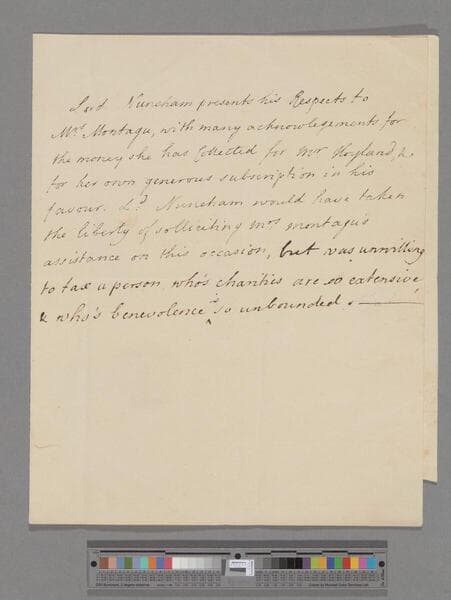 Lord Nuneham presents his Respects to
Mrs Montagu, with many acknowlegements for
the money she has Collected for Mr Hoyland, &
for her own generous subscription in his
favour. Ld Nuneham would have taken
the liberty of solliciting Mrs montagu's
assistance on this occasion, but was unwilling
to tax a person who's charities are so extensive
& who's benevolence is so unbounded.